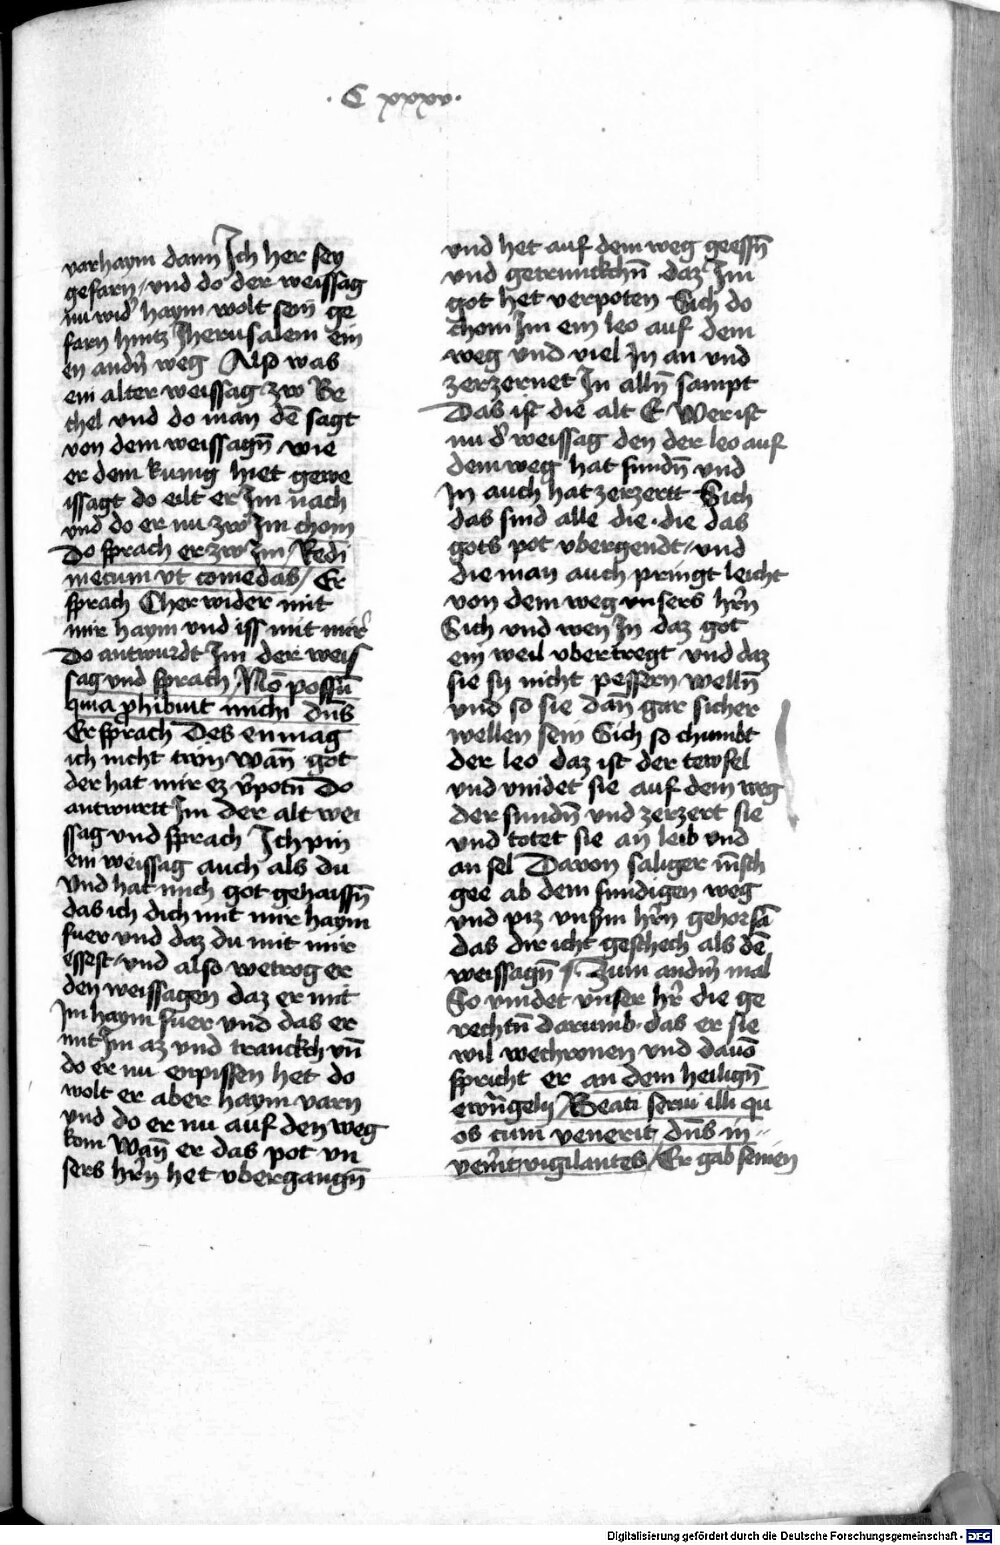 · C xxxv ·
varhaym dann Ich her sey
gefarn / vnd do der weissag
nu wid' haym wolt sein ge
farn hintz Jherusalem ein
en andn̄ weg Also was
ein alter weissag zw Be
thel vnd do man dē sagt
von dem weissagn̄ wie
er dem kunig hiet gewe
issagt do eilt er Im nach
vnd do er nu zw Im chom
Do sprach er zw Im / Redi
mecum vt comedas / Er
sprach Cher wider mit
mir haym vnd iss mit mir
Do antwurdt Im der weis
sag vnd sprach / Nō possū
quia ꝓhibuit michi dn̄s
Er sprach Des enmag
ich nicht twn wan̄ got
der hat mir ez v'potn̄ Do
antwurtt Im der alt wei
ssag vnd sprach Ich pin
ein weissag auch als du
Vnd hat mich got gehaissn̄
das ich dich mit mir haym
fuer vnd daz du mit mir
essest / vnd also wetrog er
den weissagen daz er mit
Im haym fuer vnd das er
mit Im az vnd tranckch vn̄
do er nu enpissen het do
wolt er aber haym varn
vnd do er nu auf den weg
kom Wan̄ er das pot vn
sers hr̄n het vbergangn̄
vnd het auf dem weg geessn̄
vnd getrunckchn̄ daz Im
got het verpoten Sich do
chom Im ein leo auf dem
weg vnd viel In an vnd
zerzernet In alln̄ sampt
Das ist die alt E Wer ist
nu d' weissag den der leo auf
dem weg hat fundn̄ vnd
In auch hat zerzertt Sich
das sind alle die · die das
gots pot vbergendt / vnd
die man auch pringt leicht
von dem weg vnsers hr̄n
Sich vnd wen In daz got
ein weil vbertregt vnd daz
sie sy nicht pessern welln̄
vnd so sie dan̄ gar sicher
wellen sein Sich so chumbt
der leo daz ist der tewfel
vnd vindet sie auf dem weg
der sundn̄ vnd zerzert sie
vnd totet sie an leib vnd
an sel Davon saliger m̄sch
gee ab dem sundigen weg
vnd piz vnsm̄ hr̄n gehorsā
das dir icht geschech als dē
weissagn̄ / Zum andn̄ mal
So vindet vnser hr̄ die ge
rechtn̄ darumb · das er sie
wil wechronen vnd dauō
spricht er an dem heilign̄
ewn̄gely / Beati serui illi qu
os cum venerit dn̄s in
ven̄it vigilantes / Er gab seinen
Digitalisierung gefördert durch die Deutsche Forschungsgemeinschaft - DFG